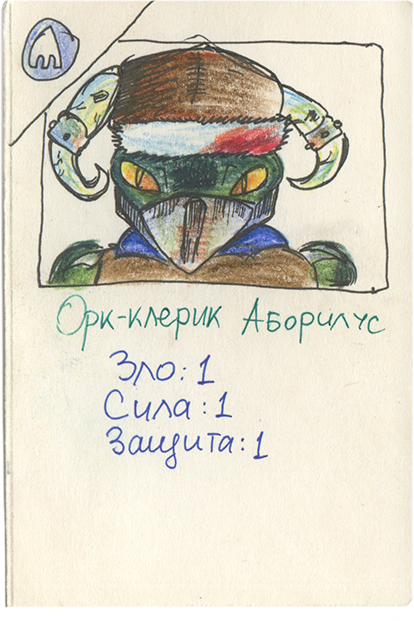 Орк-клерик Аборилус
Зло: 1
Сила: 1
Защита: 1